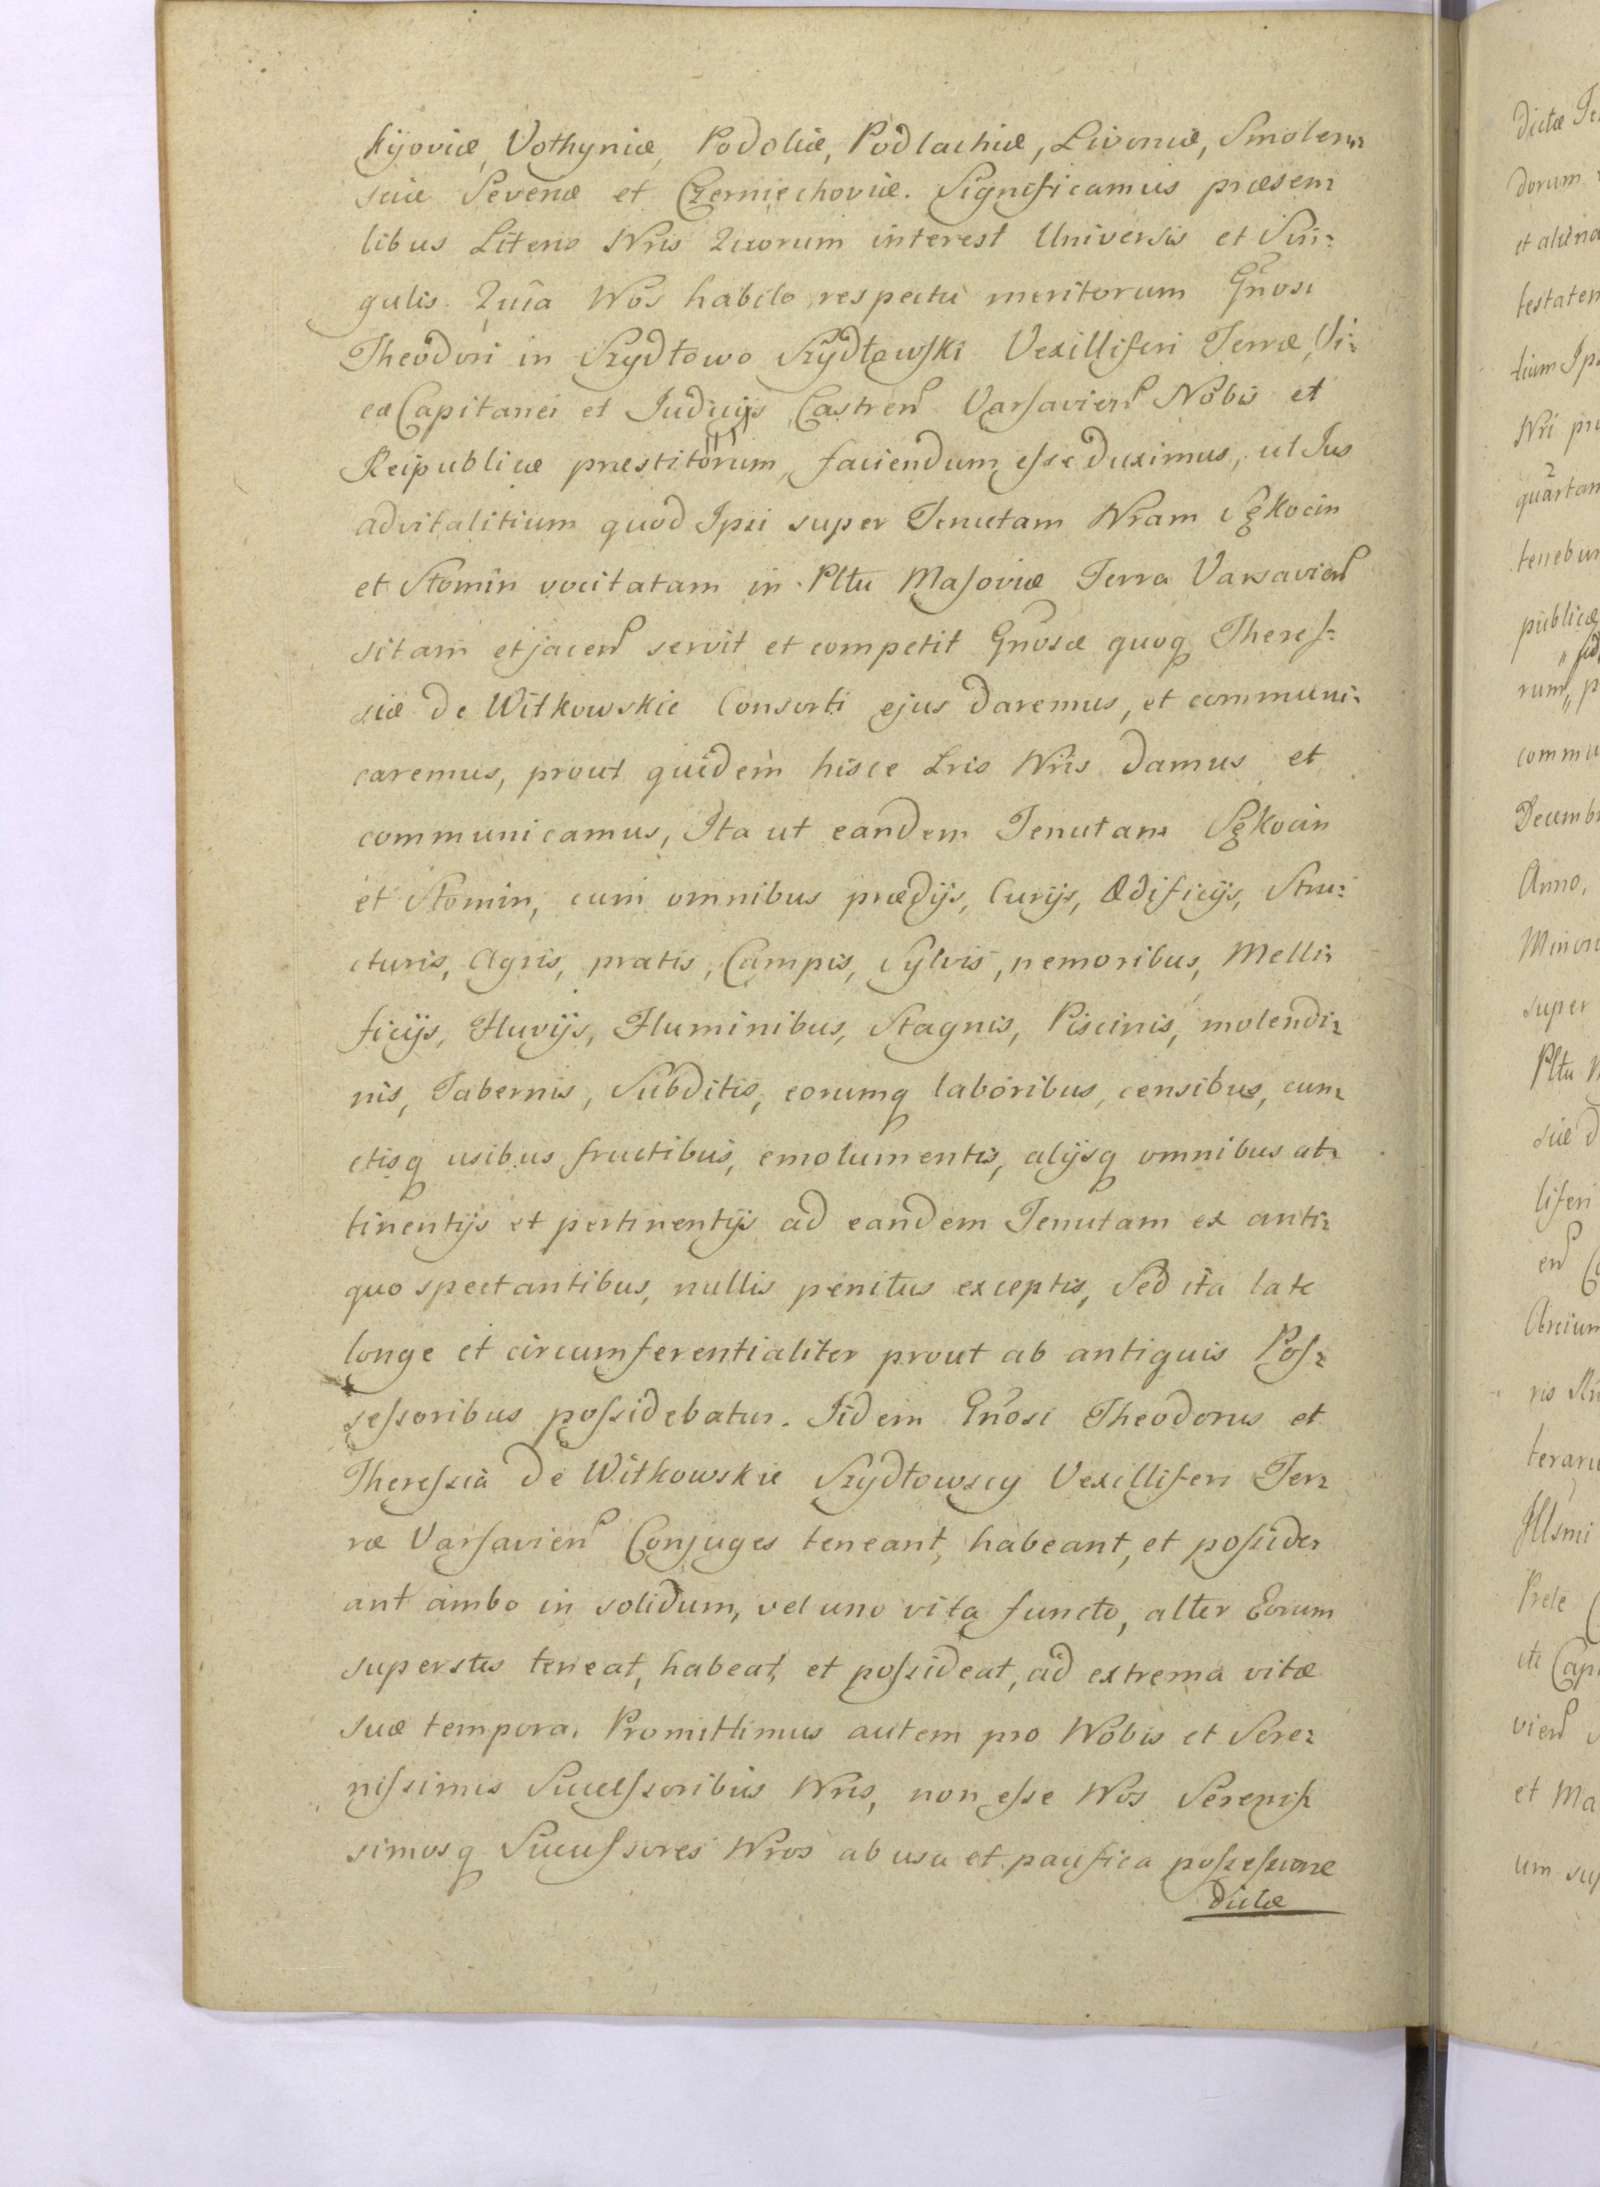 Kijoviæ, Vołhyniæ, Podoliæ, Podlachiæ, Livoniæ, Smolen:
sciæ Severiæ et Czerniechoviæ. Significamus præsen:
tibus Literis Nris Quorum interest Universis et Sin:
gulis. Quia Nos habito respectu meritorum Gnosi
Theodori in Szydłowo Szydłowski Vexilliferi Terræ, Vi:
ce Capitanei et Judicijs Castren Varsavien Nobis et
Reipublicæ præstitorum, faciendum esse duximus, ut Jus
advitalitium quod Ipsi super Tenutam Nram Sękocin
et Słomin vocitatam in Pltu Masoviæ Terra Varsavien
sitam et jacen servit et competit Gnosæ quoq Theres:
siæ de Witkowskie Consorti ejus daremus, et communi:
caremus, prout quidem hisce Lris Nris damus et
communicamus, Ita ut eandem Tenutam Sękocin
et Słomin, cum omnibus prædijs, Curijs, Ædificijs, Stru:
cturis, Agris, pratis, Campis, Sylvis, nemoribus, Melli:
ficijs, Fluvijs, Fluminibus, Stagnis, Piscinis, molendi:
nis, Tabernis, Subditis, eorumq laboribus, censibus, cun:
ctisq usibus fructibus, emolumentis, alijsq omnibus at:
tinentijs et pertinentijs ad eandem Tenutam ex anti:
quo spectantibus, nullis penitus exceptis, Sed ita late
longe et circumferentialiter prout ab antiquis Pos:
sessoribus possidebatur. Iidem Gnosi Theodorus et
Theressia de Witkowskie Szydłowscy Vexilliferi Ter:
ræ Varsavien Conjuges teneant, habeant, et posside:
ant ambo in solidum, vel uno vita functo, alter Eorum
superstes teneat, habeat, et possideat, ad extrema vitæ
suæ tempora. Promittimus autem pro Nobis et Sere:
nissimis Successoribus Nris, non esse Nos Serenis:
simosq Successores Nros ab usu et pacifica possessione
dictæ